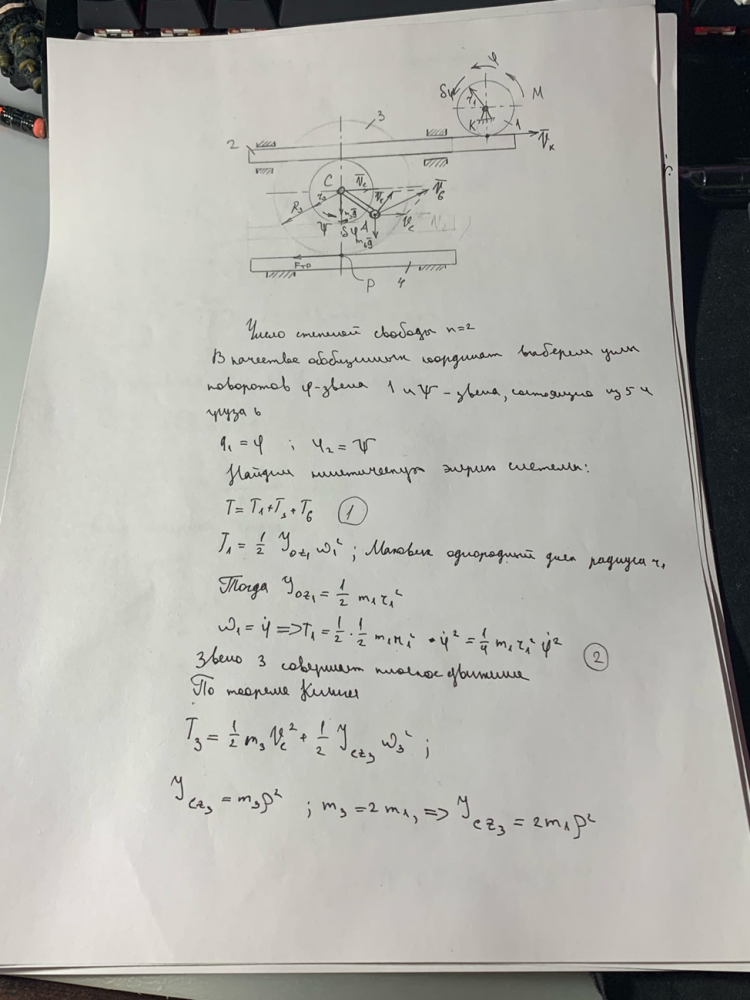 φ
δφ
M
r₁
K
1
V̄ₖ
3
2
C
V̄c
r₃
R₃
V̄₆
ψ
m₃ḡ
δψ
A
V̄c
m₆ḡ
Fтр
P
4
Число степеней свободы n=2
В качестве обобщенных координат выберем углы
поворотов φ-звена 1 и Ψ-звена, состоящего из 5 и
груза 6
q₁ = φ ; φ₂ = Ψ
Найдем кинетическую энергию системы:
T = T₁ + T₃ + T₆ (1)
T₁ = 1/2 Joz₁ ω₁² ; Маховик однородный диск радиуса r₁
Тогда Joz₁ = 1/2 m₁ r₁²
ω₁ = φ̇ => T₁ = 1/2 · 1/2 m₁ r₁² · φ̇² = 1/4 m₁ r₁² φ̇² (2)
Звено 3 совершает плоское движение
По теореме Кенига
T₃ = 1/2 m₃ Vc² + 1/2 Jcz₃ ω₃² ;
Jcz₃ = m₃ρ² ; m₃ = 2m₁, => Jcz₃ = 2m₁ρ²